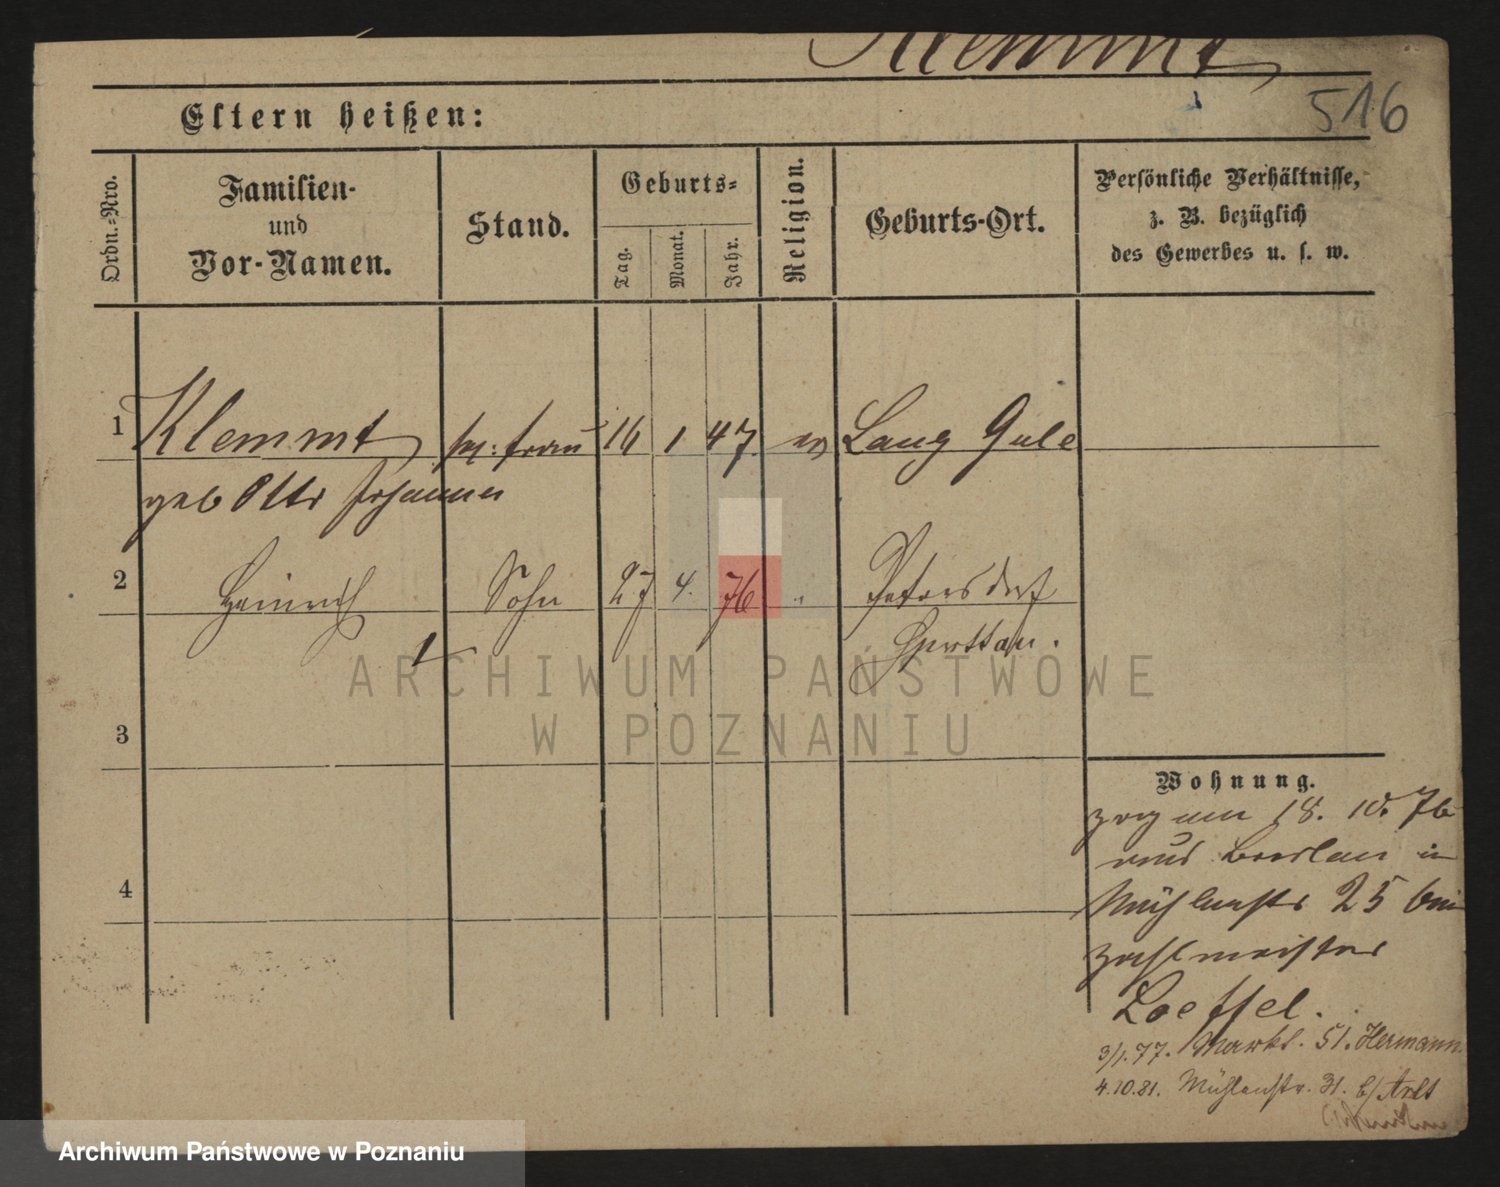 Klemmt
516
Eltern heißen:
Ordn.-Nro.
Familien- und Vor-Namen.
Stand.
Geburts-
Tag.
Monat.
Jahr.
Religion.
Geburts-Ort.
Persönliche Verhältnisse,
z. B. bezüglich
des Gewerbes u. s. w.
1 Klemmt frau 16 1 47. ev Lang Gule
geb Otto Johanna
2 Heinrich Sohn 27 4. 76 " Petersdorf
Sprottau.
3
4
Wohnung.
zog am 18. 10. 76
aus Breslau in
Mühlenstr 25 bei
Zahlmeister
Loeffel.
3/1. 77. Markt. 51. Hermann
4.10.81. Mühlenstr. 31. b/ Arlt
ARCHIWUM PAŃSTWOWE
W POZNANIU
Archiwum Państwowe w Poznaniu